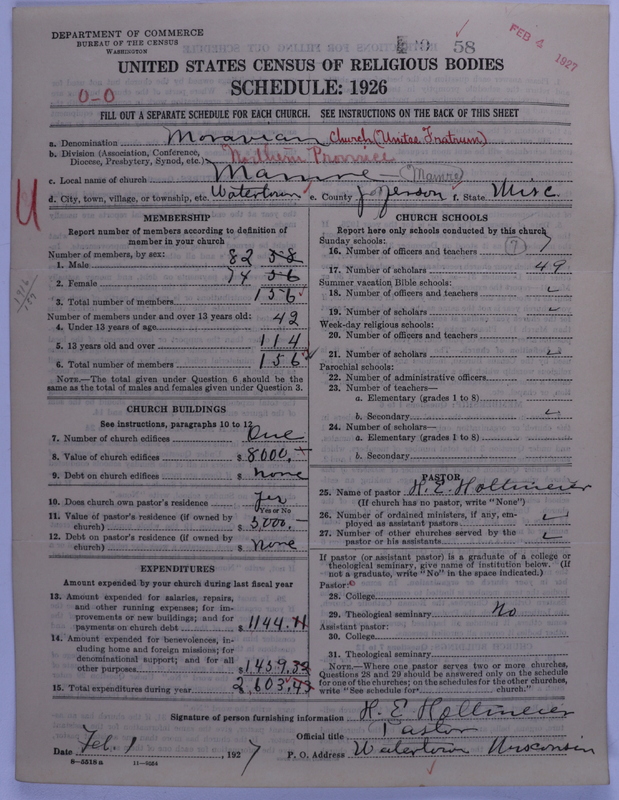 DEPARTMENT OF COMMERCE
BUREAU OF THE CENSUS
WASHINGTON
58
FEB 4 1927
UNITED STATES CENSUS OF RELIGIOUS BODIES
SCHEDULE: 1926
0-0
FILL OUT A SEPARATE SCHEDULE FOR EACH CHURCH. SEE INSTRUCTIONS ON THE BACK OF THIS SHEET
a. Denomination Moravian Church (Unitas Fratrum)
b. Division (Association, Conference, Diocese, Presbytery, Synod, etc.) Northern Province
c. Local name of church Mamre (Mamre)
d. City, town, village, or township, etc. Watertown e. County Jefferson f. State Wisc.
MEMBERSHIP
Report number of members according to definition of
member in your church
Number of members, by sex:
1. Male 82 58
2. Female 74 56
3. Total number of members 156
Number of members under and over 13 years old:
4. Under 13 years of age 42
5. 13 years old and over 114
6. Total number of members 156
NOTE.—The total given under Question 6 should be the
same as the total of males and females given under Question 3.
CHURCH BUILDINGS
See instructions, paragraphs 10 to 12
7. Number of church edifices One
8. Value of church edifices $ 8000.
9. Debt on church edifices $ None
10. Does church own pastor's residence Yes
Yes or No
11. Value of pastor's residence (if owned by
church) $ 3000.—
12. Debt on pastor's residence (if owned by
church) $ None
EXPENDITURES
Amount expended by your church during last fiscal year
13. Amount expended for salaries, repairs,
and other running expenses; for im-
provements or new buildings; and for
payments on church debt $ 1144.11
14. Amount expended for benevolences, in-
cluding home and foreign missions; for
denominational support; and for all
other purposes $ 1459.32
15. Total expenditures during year 2603.43
CHURCH SCHOOLS
Report here only schools conducted by this church
Sunday schools:
16. Number of officers and teachers (7) 7
17. Number of scholars 49
Summer vacation Bible schools:
18. Number of officers and teachers
19. Number of scholars
Week-day religious schools:
20. Number of officers and teachers
21. Number of scholars
Parochial schools:
22. Number of administrative officers
23. Number of teachers—
a. Elementary (grades 1 to 8)
b. Secondary
24. Number of scholars—
a. Elementary (grades 1 to 8)
b. Secondary
PASTOR
25. Name of pastor H. E. Hollmeier
(If church has no pastor, write "None")
26. Number of ordained ministers, if any, em-
ployed as assistant pastors
27. Number of other churches served by the
pastor or his assistants
If pastor (or assistant pastor) is a graduate of a college or
theological seminary, give name of institution below. (If
not a graduate, write "No" in the space indicated.)
Pastor:
28. College
29. Theological seminary No
Assistant pastor:
30. College
31. Theological seminary
NOTE.—Where one pastor serves two or more churches,
Questions 28 and 29 should be answered only on the schedule
for one of the churches; on the schedules for the other churches,
write "See schedule for church."
Signature of person furnishing information H. E. Hollmeier
Official title Pastor
Date Feb. 1, 1927 P. O. Address Watertown Wisconsin
8—5518 a 11—9584